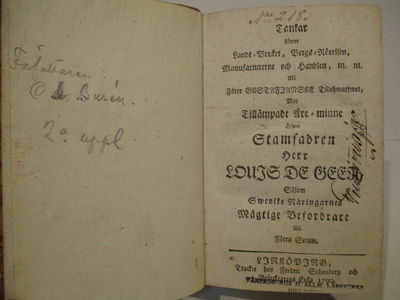 Författaren:
C. d. Burén.
2a uppl
No 218.
Tankar
öfwer
Landt-Bruket, Bergs-Rörelsen,
Manufacturerne och Handlen, m. m.
uti
Förre GUSTAFIANSKE Tidehwarfwet,
Med
Tillämpadt Äre-minne
Öfwer
Stamfadren
Herr
LOUIS DE GEER
Såsom
Swenske Näringarnes
Mägtige Befordrare
uti
Förra Seculo.
LINKÖPING,
Tryckte hos Fredric Schonberg och
Björckegrens Enka